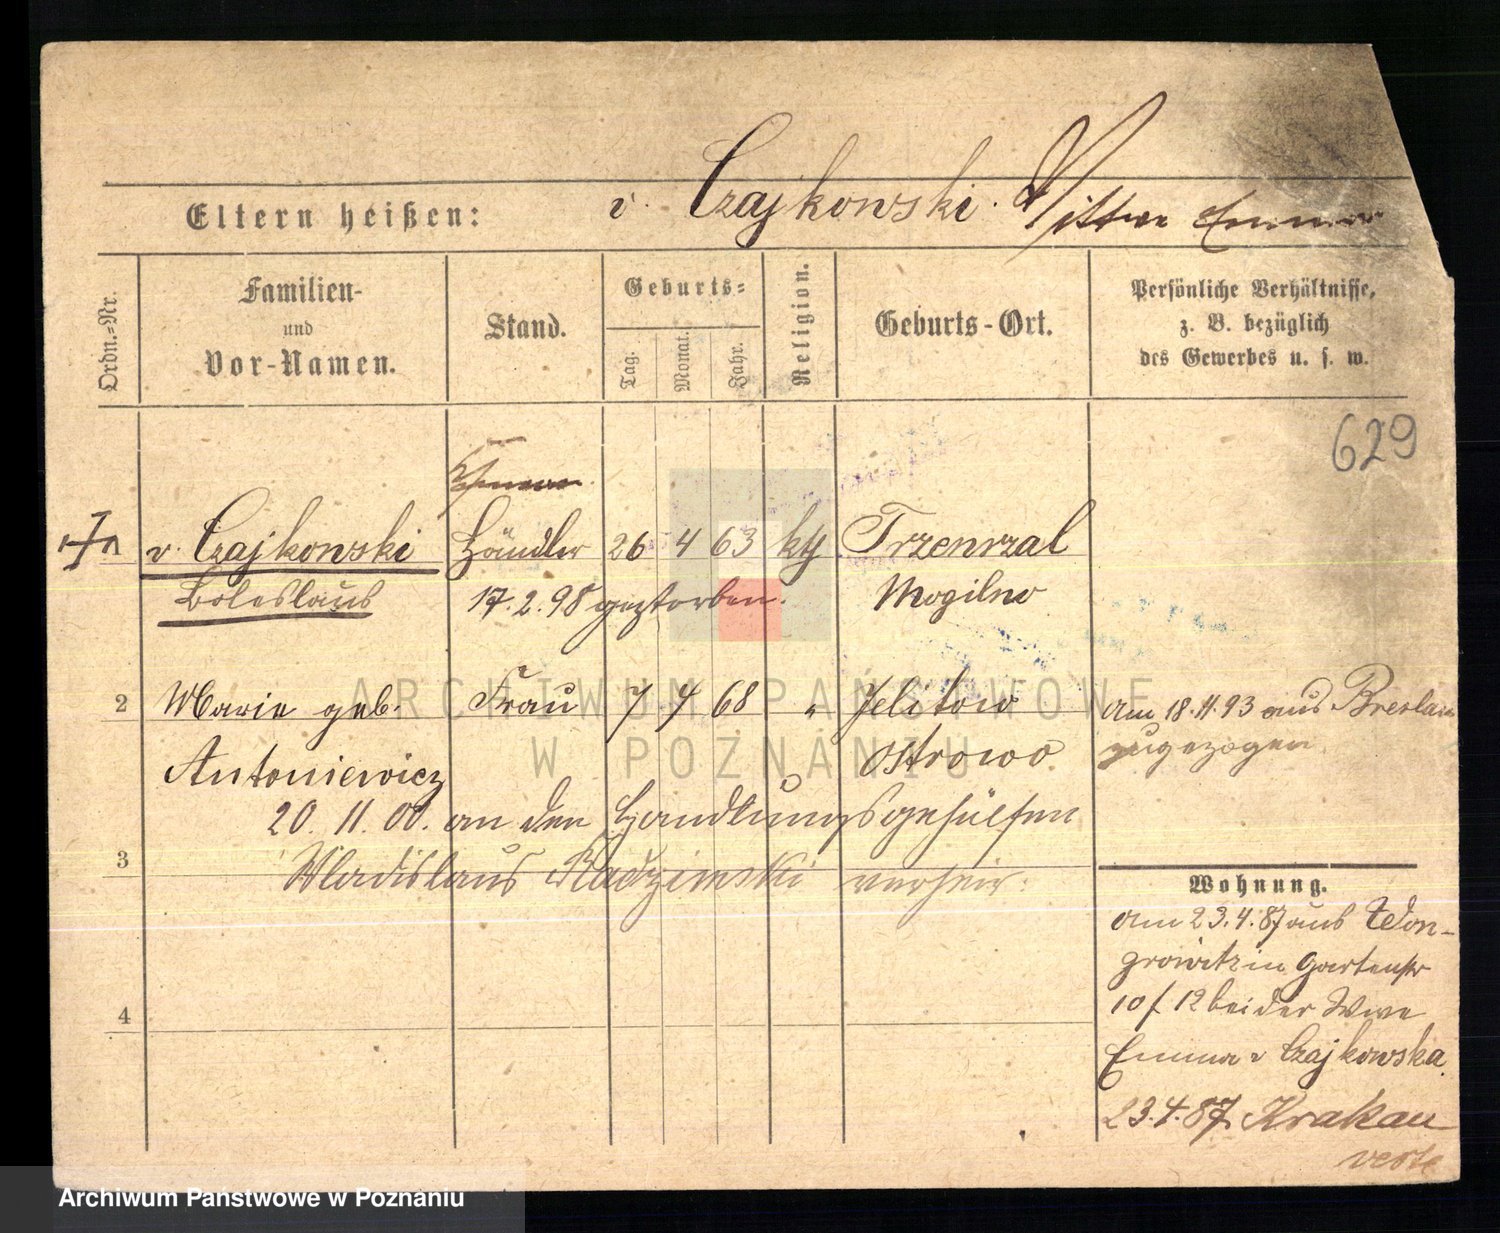 Eltern heißen: v. Czajkowski. Wittwe Emma
Ordn.=Nr.
Familien-
und
Vor-Namen.
Stand.
Geburts=
Tag.
Monat.
Jahr.
Religion.
Geburts-Ort.
Persönliche Verhältnisse,
z. B. bezüglich
des Gewerbes u. s. w.
629
v. Czajkowski Händler 26 4 63 kth Trzemzal
Boleslaus 17.2.98 gestorben. Mogilno
2 Marie geb. Frau 7 4 68 " Jelitow
Antoniewicz Ostrowo.
Am 18.11.93 aus Breslau
zugezogen
20. 11. 00. an den Handlungsgehülfen
3 Wladislaus Radziemski verheir.
4
Wohnung.
Am 23.4.87 aus Won-
growitz in Gartenstr
10/12 bei der Wwe
Emma v Czajkowska.
23.4.87 Krakau
verte
ARCHIWUM PAŃSTWOWE
W POZNANIU
Archiwum Państwowe w Poznaniu